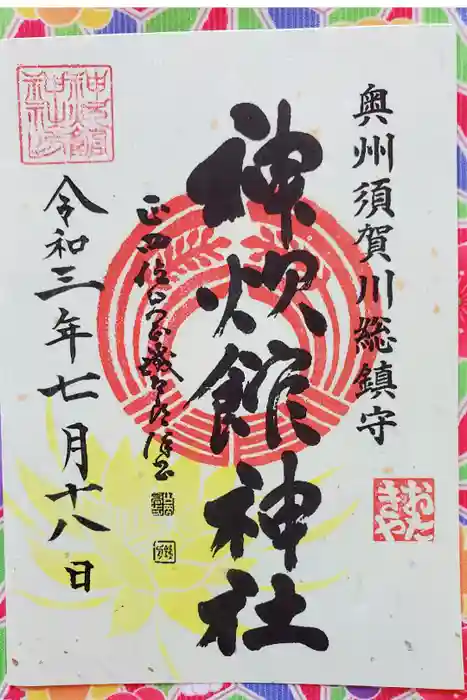 奥州須賀川総鎮守
おたきや
神炊館神社
令和三年七月十八日